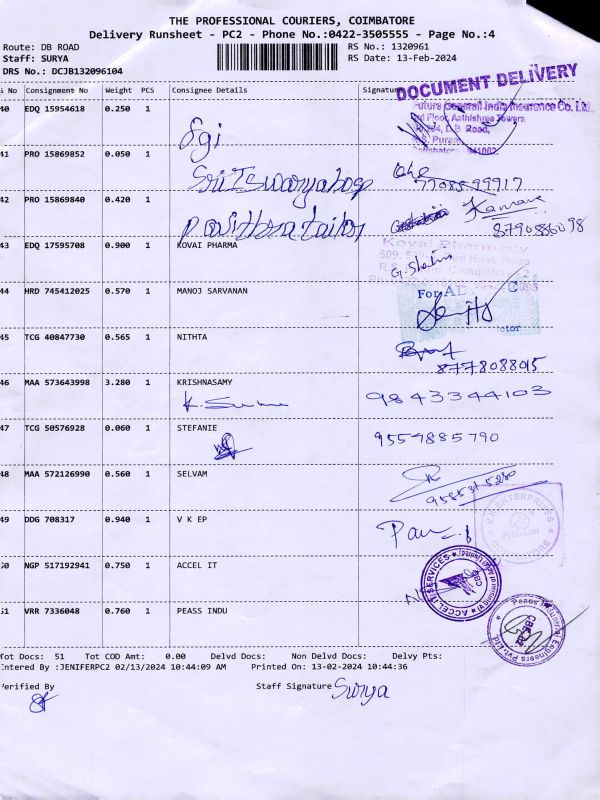 THE PROFESSIONAL COURIERS, COIMBATORE
Delivery Runsheet - PC2 - Phone No.:0422-3505555 - Page No.:4
Route: DB ROAD
RS No.: 1320961
Staff: SURYA
RS Date: 13-Feb-2024
DRS No.: DCJB132096104
No Consignment No Weight PCS Consignee Details Signature
DOCUMENT DELIVERY
40 EDQ 15954618 0.250 1 Sgi
Future Generali India Insurance Co. Ltd.
Floor, Aathishree Towers
D.B. Road,
R.S. Puram
Coimbatore 641002
41 PRO 15869852 0.050 1
42 PRO 15869840 0.420 1
8790886098
43 EDQ 17595708 0.900 1 KOVAI PHARMA
Kovai Pharmacy
Coimbatore-2
44 HRD 745412025 0.570 1 MANOJ SARVANAN
For
45 TCG 40847730 0.565 1 NITHTA
8778088015
46 MAA 573643998 3.280 1 KRISHNASAMY
9843344103
47 TCG 50576928 0.060 1 STEFANIE
9559885790
48 MAA 572126990 0.560 1 SELVAM
49 DDG 708317 0.940 1 V K EP
V.K ENTERPRISES
50 NGP 517192941 0.750 1 ACCEL IT
ACCEL IT SERVICES
51 VRR 7336048 0.760 1 PEASS INDU
Peass Industrial Engineers Pvt. Ltd.
CBE
Tot Docs: 51 Tot COD Amt: 0.00 Delvd Docs: Non Delvd Docs: Delvy Pts:
Entered By :JENIFERPC2 02/13/2024 10:44:09 AM Printed On: 13-02-2024 10:44:36
Verified By
Staff Signature Surya